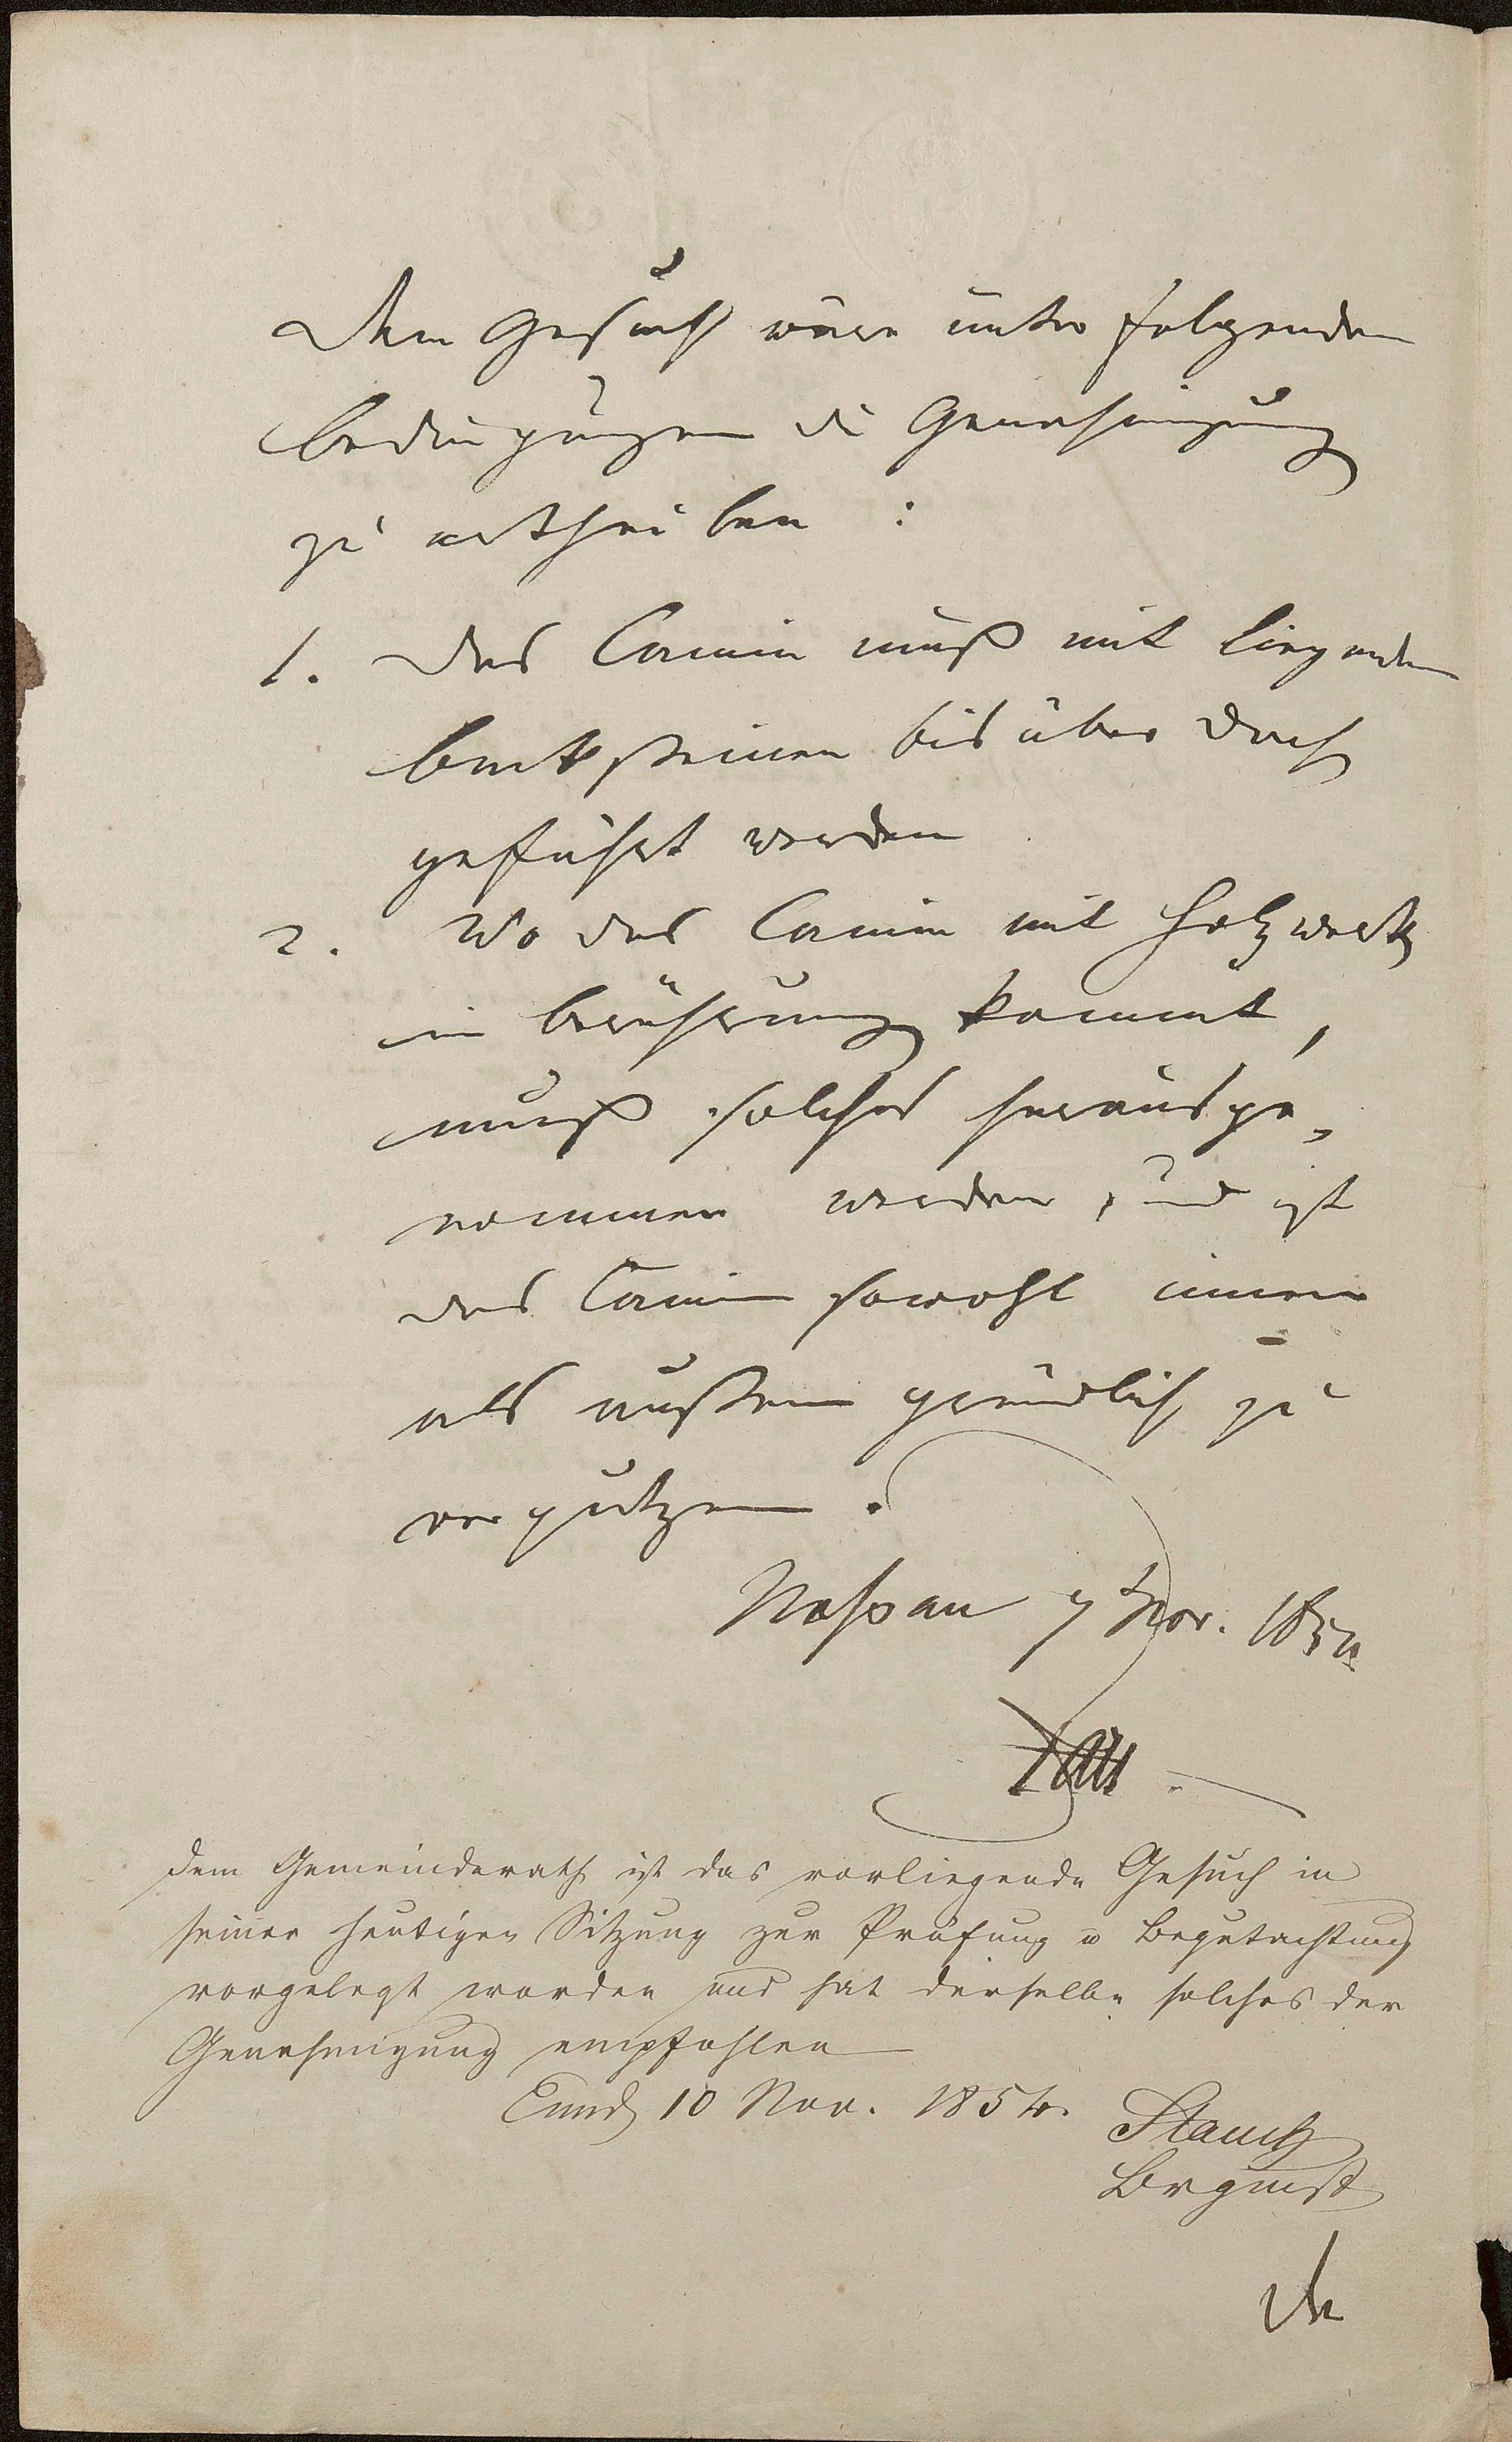 Dem Gesuch wäre unter folgenden
bedingungen die Genehmigung
zu ertheilen :
1. Das Camin muß mit liegenden
backsteinen bis über Dach
geführt werden
2. Wo das Camin mit Holzwerk
in berührung kommt,
muß solches herausge„
nommen werden, und ist
das Camin sowohl innen
als außen gründlich zu
verputzen.
Nassau 7 Nov. 1854
Dem Gemeinderath ist das vorliegende Gesuch in
seiner heutigen Sitzung zur Prüfung u Begutachtung
vorgelegt worden und hat derselbe solches der
Genehmigung empfohlen
10 Nov. 1854.